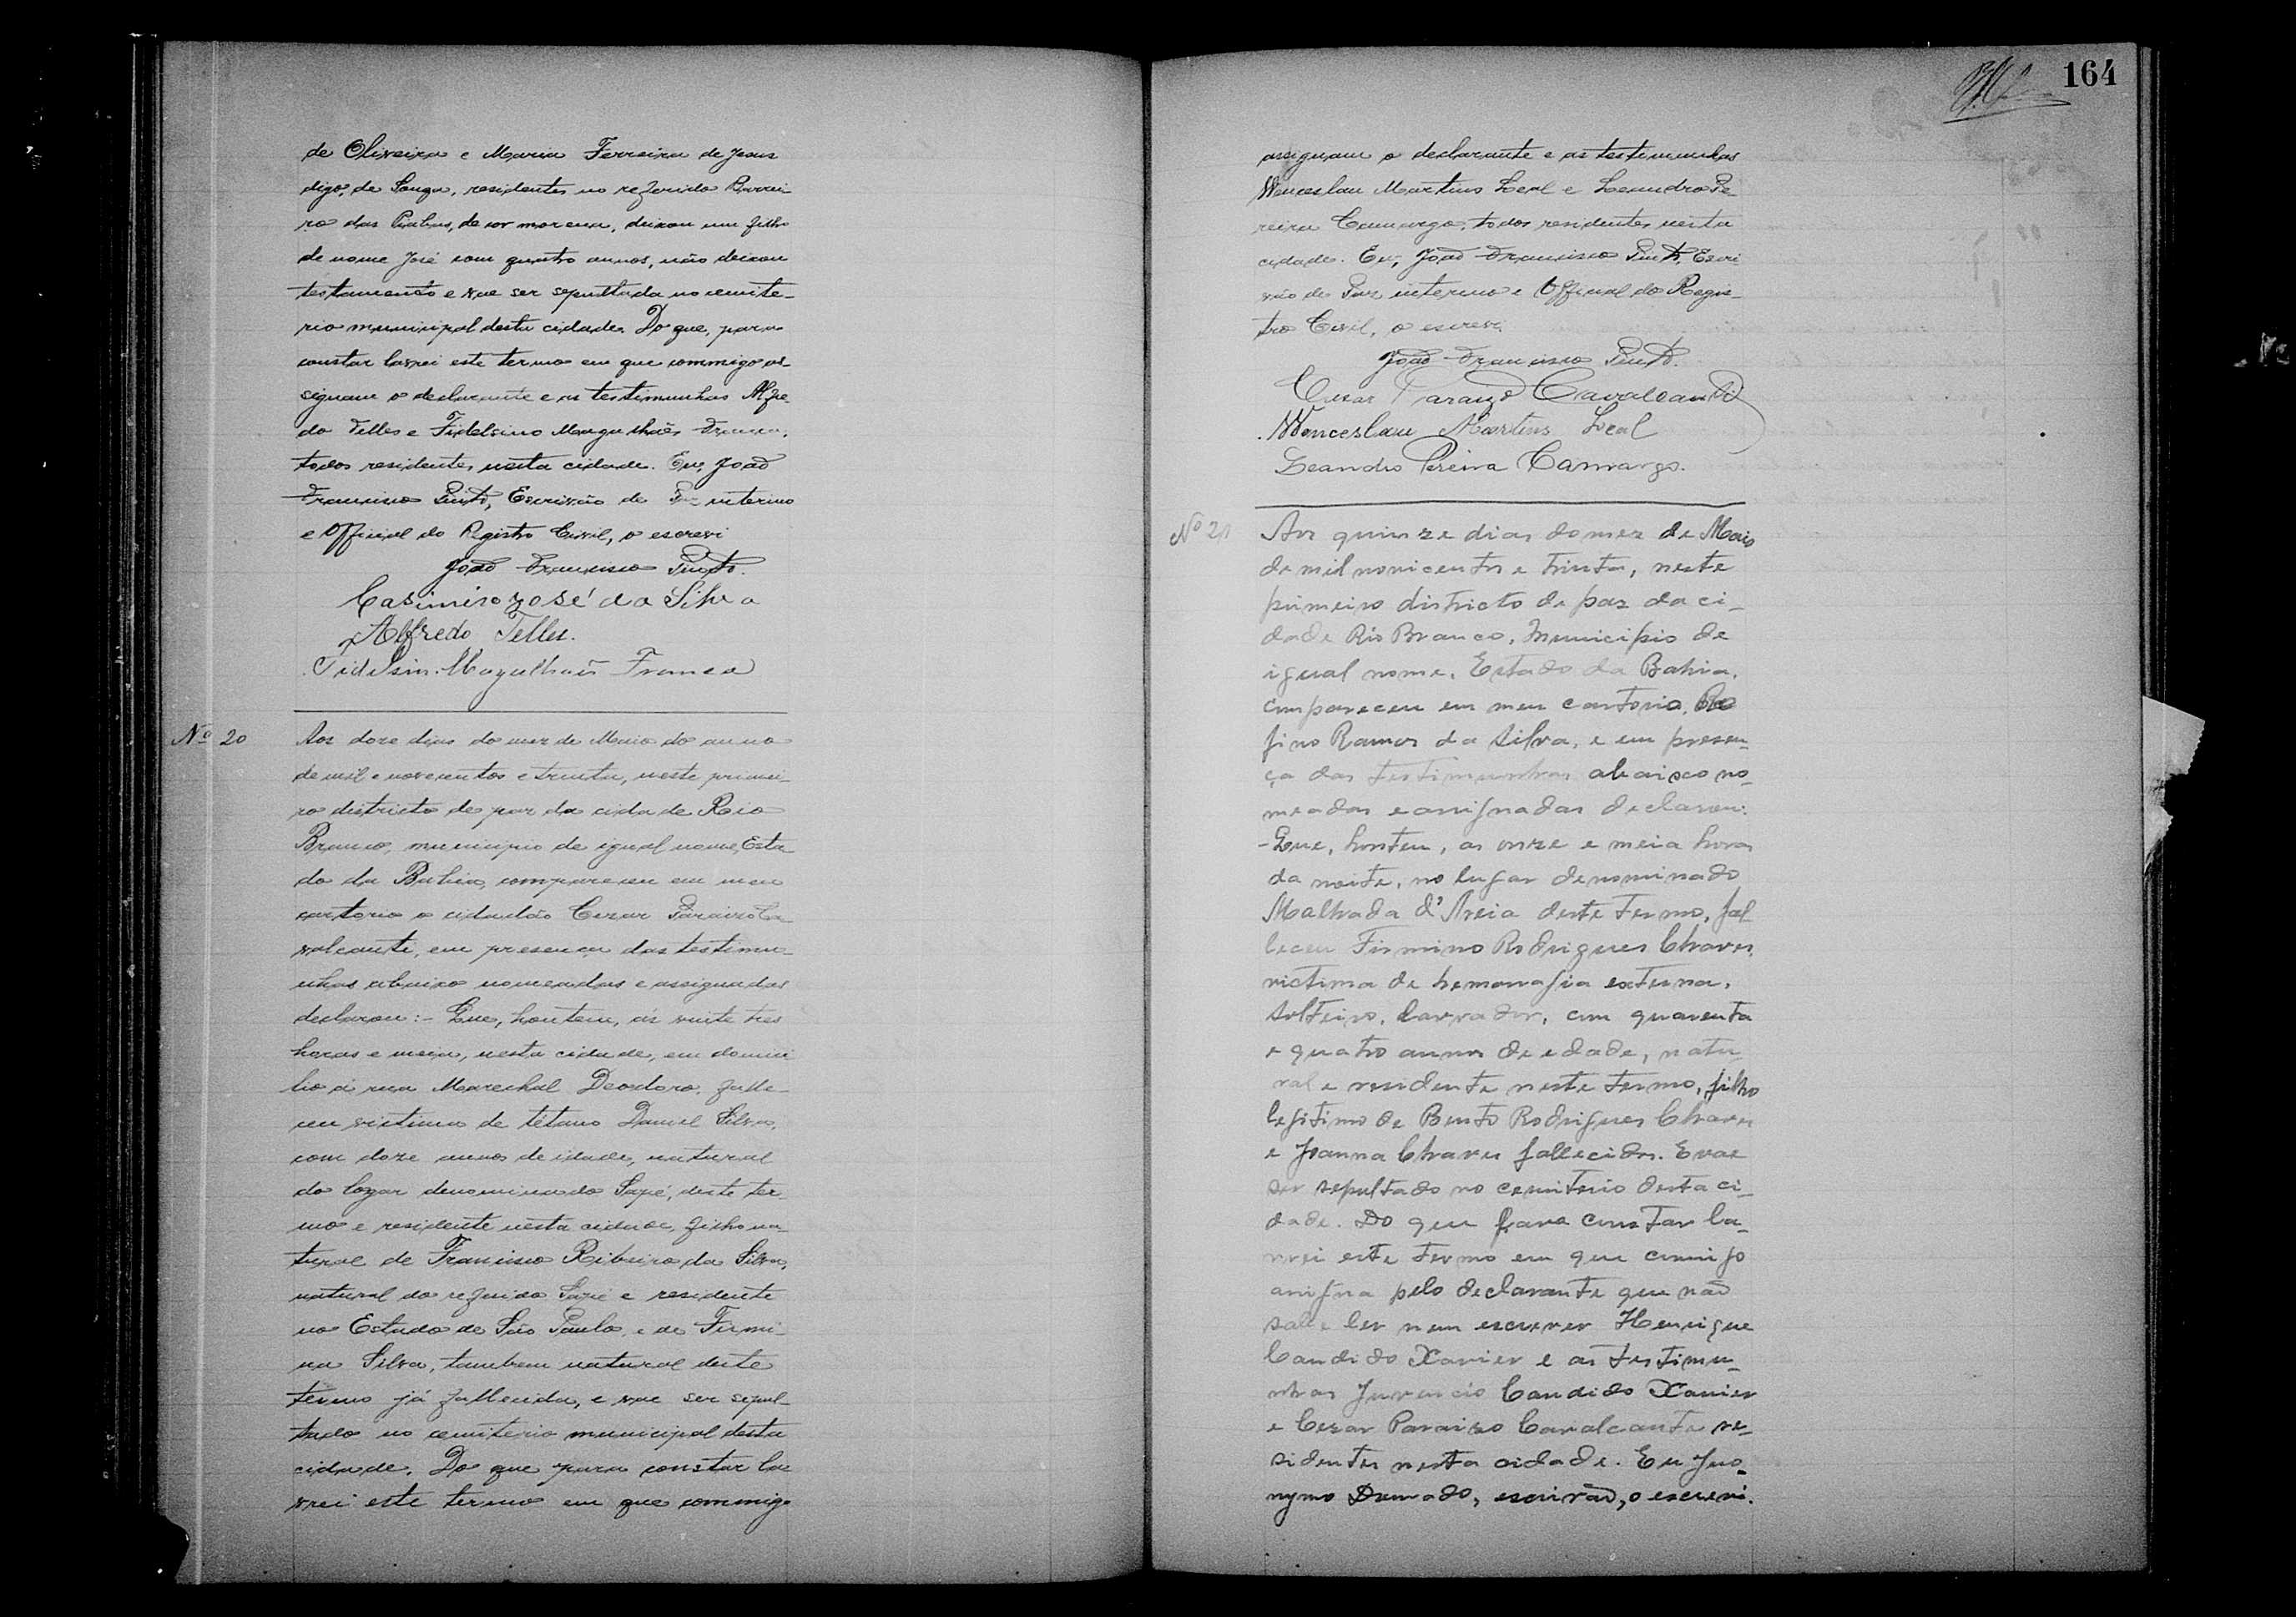 de Oliveira e Maria Ferreira de Jesus
digo, de Souza, residentes no referido Barrei-
ro das Pinhas, de cor morena, deixou um filho
de nome José com quatro annos, não deixou
testamento e vae ser sepultada no cemite-
rio municipal desta cidade. Do que, para
constar lavrei este termo em que commigo as-
signam o declarante e as testimunhas Alfre-
do Telles e Fidelsino Magalhães Franca,
todos residentes nesta cidade. Eu, João
Francisco Pinto, Escrivão de Paz interino
e Official do Registro Civil, o escrevi
João Francisco Pinto.
Casimiro José da Silva
Alfredo Telles.
Fidelsin. Magalhães Franca
Nº 20
Aos doze dias do mez de Maio do anno
de mil e novecentos e trinta, neste primei-
ro districto de paz da cidade Rio
Branco, municipio de igual nome, Esta-
do da Bahia, compareceu em meu
cartorio o cidadão Cezar Paraizo Ca-
valcante, em presença das testimu-
nhas abaixo nomeadas e assignadas
declarou:- Que, hontem, ás vinte tres
horas e meia, nesta cidade, em domici
lio á rua Marechal Deodoro, falle-
ceu victima de tétano Daniel Silva,
com doze annos de idade, natural
do logar denominado Sapé, deste ter-
mo e residente nesta cidade, filho na-
tural de Francisco Ribeiro da Silva,
natural do referido Sapé e residente
no Estado de São Paulo, e de Firmi-
na Silva, tambem natural deste
termo já fallecida, e vae ser sepul-
tado no cemiterio municipal desta
cidade. Do que para constar la-
vrei este termo em que commigo
164
assignam o declarante e as testimunhas
Wenceslau Martins Leal e Leandro Pe-
reira Camargo, todos residentes nesta
cidade. Eu, João Francisco Pinto, Escri
vão de Paz interino e Official do Regis-
tro Civil, o escrevi.
João Francisco Pinto.
Cezar Paraizo Cavalcanti
Wenceslau Martins Leal
Leandro Pereira Camargo.
Nº 21
Aos quinze dias do mez de Maio
de mil novicentos e trinta, neste
primeiro districto de paz da ci-
dade Rio Branco, Municipio de
igual nome, Estado da Bahia,
compareceu em meu cartorio,
fino Ramos da Silva, e em presen-
ça das testimunhas abaixo no-
meadas e assignadas declarou:
-Que, hontem, as onze e meia horas
da noite, no lugar denominado
Malhada d'Areia deste termo, fal-
leceu Firmino Rodrigues Chaves,
victima de hemorragia externa,
solteiro, lavrador, com quarenta
e quatro annos de edade, natu-
ral e residente neste termo, filho
legitimo de Bento Rodrigues Chaves
e Joanna Chaves fallecidos. E vae
ser sepultado no cemiterio desta ci-
dade. Do que para constar la-
vrei este termo em que comigo
assigna pelo declarante que não
sabe ler nem escrever Henrique
Candido Xavier e as testimu-
nhas Juvencio Candido Xavier
e Cezar Paraizo Cavalcante re-
sidentes nesta cidade. Eu
escrivão, o escrevi.